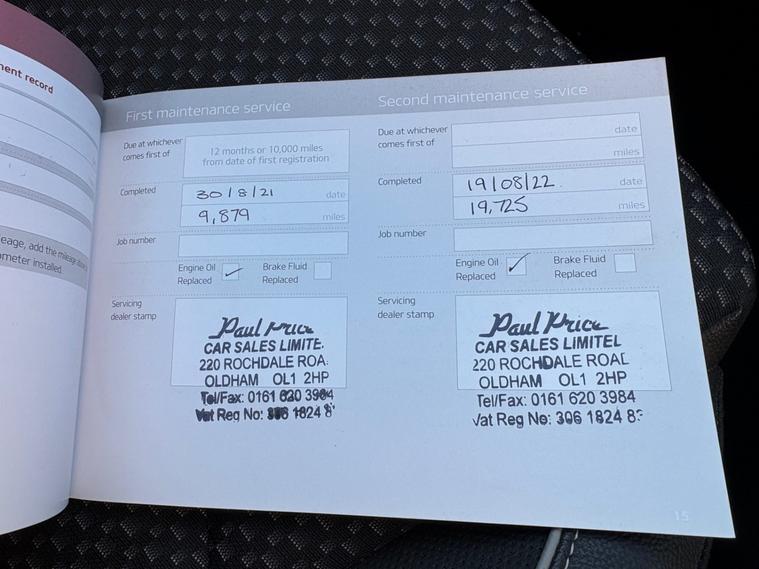 ment record
eage, add the mileage
ometer installed.
First maintenance service
Due at whichever
comes first of
12 months or 10,000 miles
from date of first registration
Completed
30/8/21 date
9,879 miles
Job number
Engine Oil
Replaced ✓
Brake Fluid
Replaced
Servicing
dealer stamp
Paul Price
CAR SALES LIMITE
220 ROCHDALE ROA
OLDHAM OL1 2HP
Tel/Fax: 0161 620 3984
Vat Reg No: 306 1824 8
Second maintenance service
Due at whichever
comes first of
date
miles
Completed
19/08/22 date
19,725 miles
Job number
Engine Oil
Replaced ✓
Brake Fluid
Replaced
Servicing
dealer stamp
Paul Price
CAR SALES LIMITED
220 ROCHDALE ROAD
OLDHAM OL1 2HP
Tel/Fax: 0161 620 3984
Vat Reg No: 306 1824 8
15